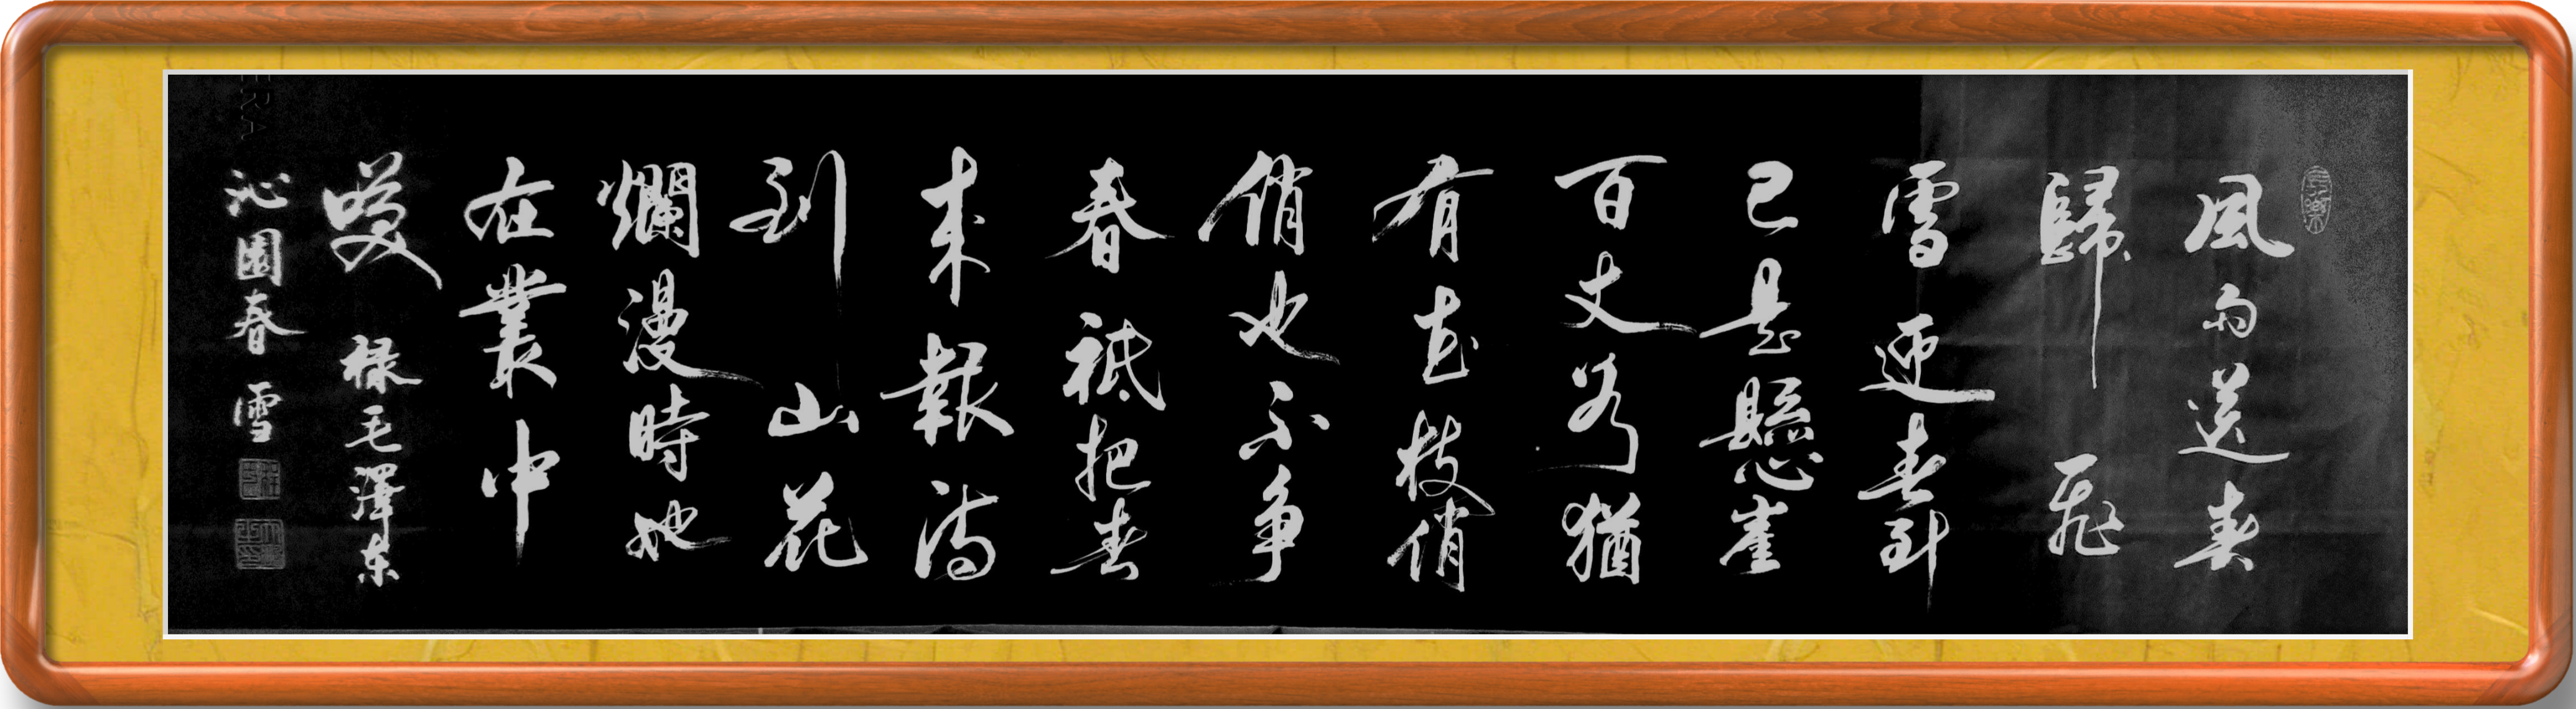 風雨送春
歸 飛
雪迎春到
已是懸崖
百丈冰猶
有花枝俏
俏也不争
春祗把春
来報待
到山花
爛漫時她
在叢中
笑 禄毛澤东
沁園春 雪